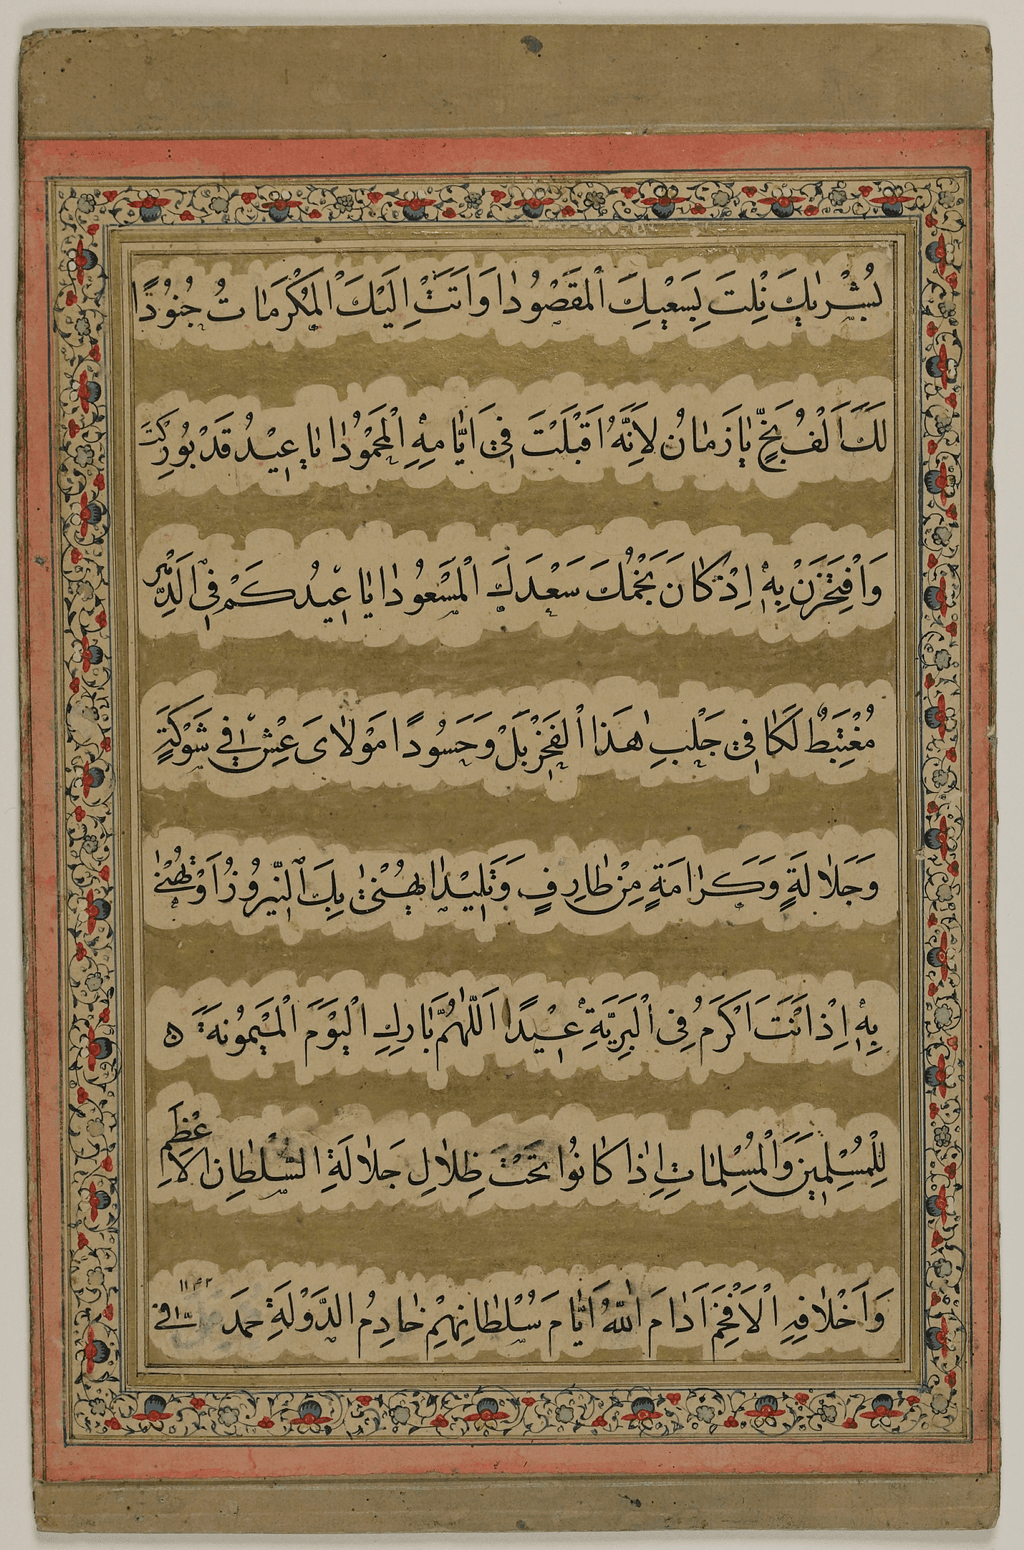 بُشْرٰیكَ نِلْتَ بِسَعْیِكَ الْمَقْصُودٰا وَاَتَتْ اِلَیْكَ الْمَكْرَمٰاتُ جُنُودًا
لَكَ اَلْفُ بَخٍّ یٰا زَمٰانُ لِاَنَّهُ اَقْبَلْتَ فِی اَیّٰامِهِ الْمَحْمُودٰا یٰا عِیْدُ قَدْ بُورِكْتَ
وَافْتَخِرَنْ بِهِ اِذْ كٰانَ نَجْمُكَ سَعْدَكَ الْمَسْعُودٰا یٰا عِیْدُكَمْ فِی الدَّهْرِ
مُغْتَبِطٌ لَكٰا فِی جَلْبِ هٰذَا الْفَخْرِ بَلْ وَحَسُودًا مَوْلٰایَ عِشْ فِی شَوْكَةٍ
وَجَلٰالَةٍ وَكَرٰامَةٍ مِنْ طٰارِفٍ وَتَلِیْدٰا یُهْنٰی بِكَ النَّیْرُوزُ اَوْ تُهْنٰی
بِهِ اِذْ اَنْتَ اَكْرَمُ فِی الْبَرِیَّةِ عِیْدًا اَللّٰهُمَّ بٰارِكِ الْیَوْمَ الْمَیْمُونَةَ
لِلْمُسْلِمِیْنَ وَالْمُسْلِمٰاتِ اِذٰا كٰانُوا تَحْتَ ظِلٰالِ جَلٰالَةِ السُّلْطٰانِ الْاَعْظَمِ
وَاَخْلٰافِهِ الْاَفْخَمِ اَدٰامَ اللّٰهُ اَیّٰامَ سُلْطٰانِهِمْ خٰادِمُ الدَّوْلَةِ ١١٤٢